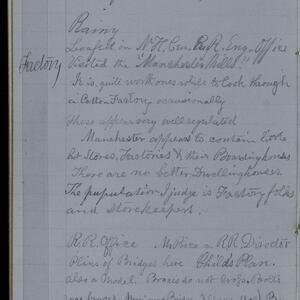 Rainy
Factory
in N.H. Cen. R.R. Eng. Office
Visited the "Manchester Mills"
It is quite worth ones while to look through
a Cotton Factory occasionally
These appear very well regulated
Manchester appears to contain little
but Stores, Factories & their Boardinghouses
There are no better Dwellinghouses.
The population I judge is Factory folks
and Storekeepers.
R.R. Office in RR Director
Plans of Bridges here Childs Plan.
also a Model. Braces do not Bolts